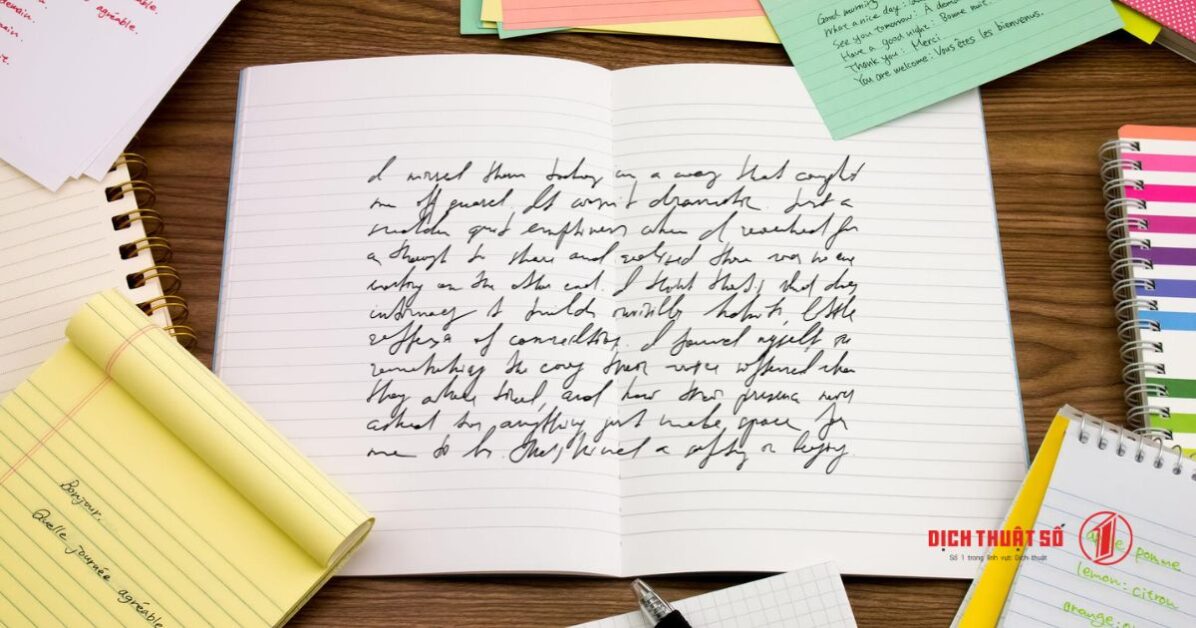 demain.
agréable.
main.
Good morning
What a nice day:
See you tomorrow: À dem
Have a good night: Bonne nuit.
Thank you: Merci
You are welcome: Vous êtes les bienvenus.
I missed them today in a way that caught
me off guard. It wasn't dramatic. Just a
sudden quiet emptiness when I reached for
a thought to share and realized there was no one
waiting on the other end. I think that's what
intimacy builds invisible habits, little
of connection. I found myself
remembering the way their voice softened when
they were tired, and how their presence never
asked for anything just made space for
me to be. That kind
Bonjour.
Quelle journée agréable.
DỊCH THUẬT SỐ 1
Số 1 trong lĩnh vực Dịch thuật
pomme
lemon: citron
orange: